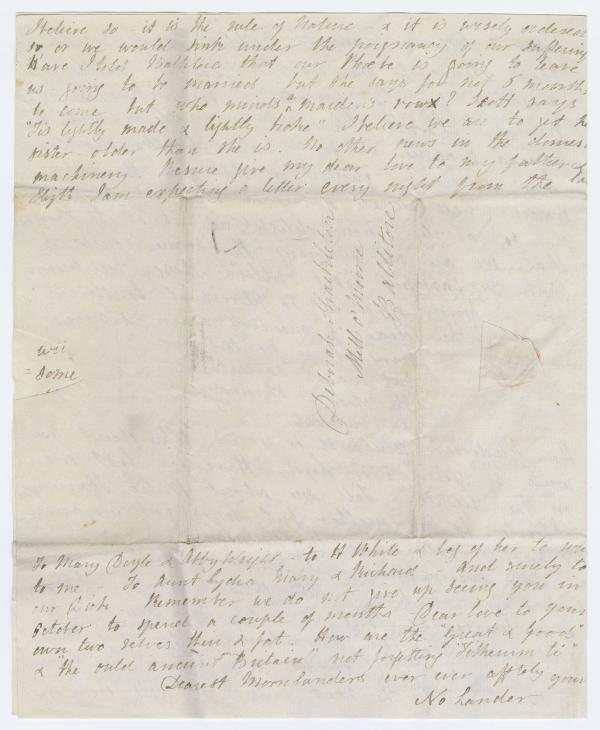 I believe so - it is the rule of Nature - & it is wisely ordered
so or we would sink under the poignancy of our suffering
Have I told Ballitore that our Phoebe is going to leave
us going to be married but she says for not 8 months
to come but who minds a maiden's vow? Scott says
"Tis lightly made & lightly broke" I believe we are to get he
sister older than she is. No other news in the domes
machinery. Be sure give my dear love to my father &
I am expecting a letter every night from the
Deborah Shackleton
Mill o' Morne
Ballitore
wii
= some
To Mary Doyle & Abby Wright - to H White & beg of her to
to me. To Aunt Lydia Mary & Richard - And surely to
our Dick. Remember we do not give up seeing you in
October to spend a couple of months - Dear love to your
own two selves thin & fat. How are the "Great & Good"
& "the ould ancient Britain" not forgetting
Dearest Mornlanders ever ever affly your
No Lander